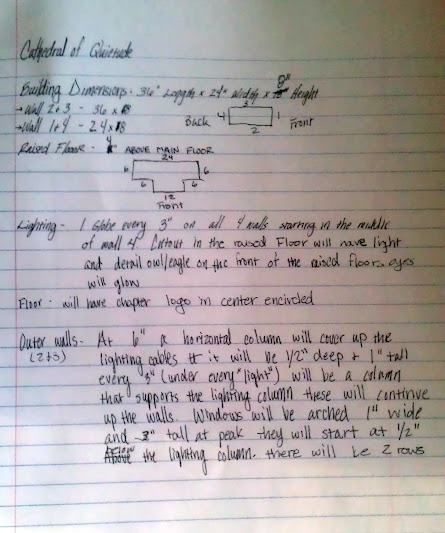 Cathedral of Quietude
8"
Building Dimensions - 36" Length x 24" Width x Height
→ Wall 2+3 - 36 x 8
3
Back 4 1 Front
→ Wall 1+4 - 24 x 8
2
Raised Floor - 4" ABOVE MAIN FLOOR
24
6 6
6 6
12
Front
Lighting - 1 Globe every 3" on all 4 walls starting in the middle
of wall 4. Cutout in the raised Floor will have light
and detail owl/eagle on the front of the raised floor. eyes
will glow
Floor - will have chapter logo in center encircled
Outer walls - At 6" a horizontal column will cover up the
(2+3) lighting cables it will be 1/2" deep + 1" tall
every 3" (under every "light") will be a column
that supports the lighting column these will continue
up the walls. Windows will be arched 1" wide
and 3" tall at peak they will start at 1/2"
below
the lighting column. there will be 2 rows